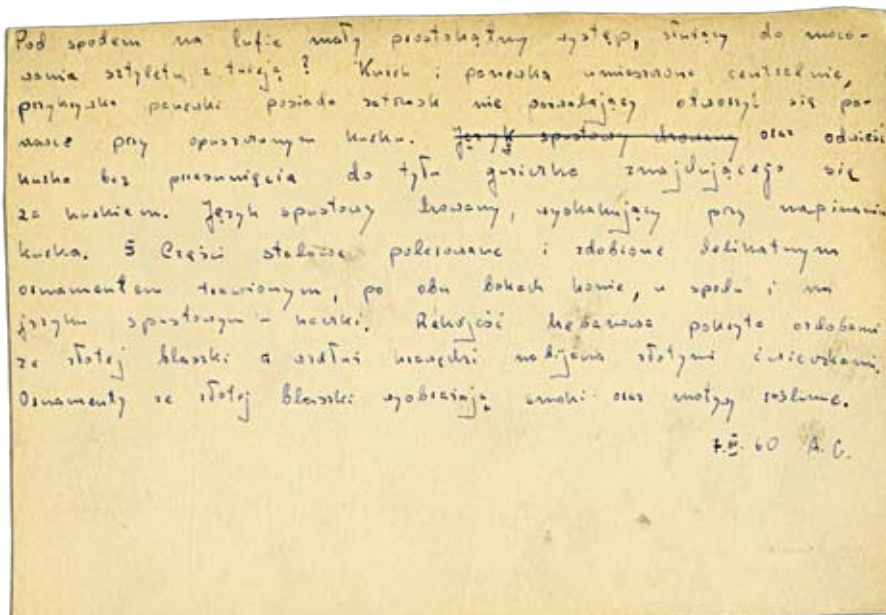 Pod spodem na lufie mały prostokątny występ, służący do moco-
wania sztyletu z tuleją? Kurek i panewka umieszczone centralnie,
przykrywka panewki posiada zatrzask nie pozwalający otworzyć się pa-
newce przy opuszczonym kurku. Język spustowy drewniany oraz odwieść
kurka bez przesunięcia do tyłu guziczka znajdującego się
za kurkiem. Język spustowy, wyskakujący przy napinaniu
kurka. Części stalowe polerowane i zdobione delikatnym
ornamentem trawionym, po obu bokach konie, u spodu i na
języku spustowym - kaczki. Rękojeść hebanowa pokryta ozdobami
ze złotej blaszki a wzdłuż krawędzi nabijana złotymi ćwieczkami.
Ornamenty ze złotej blaszki wyobrażają smoki oraz motywy roślinne.
60 A.C.